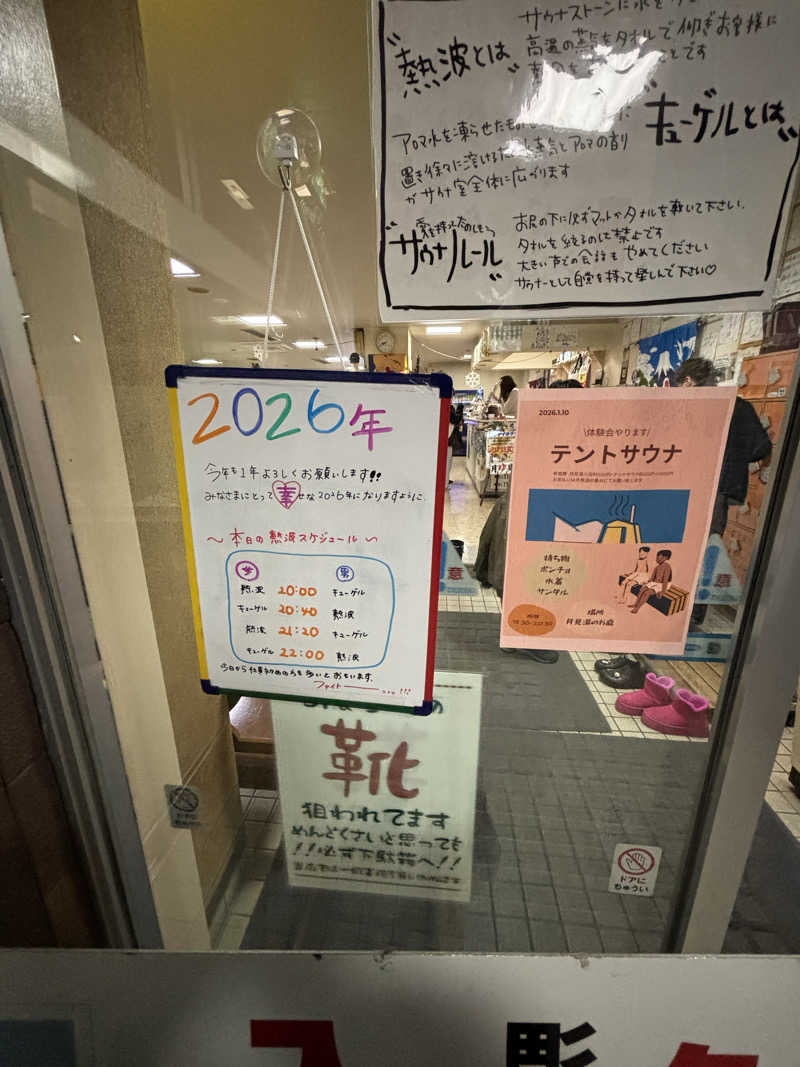 サウナストーンに水を
"熱波とは"
高温の蒸気をタオルで仰ぎお客様に
ことです
"キューゲルとは"
アロマ水を凍らせたもの
置き徐々に溶ける 蒸気とアロマの香り
がサウナ室全体に広がります
愛を持ってたのしもう
"サウナルール"
お尻の下に必ずマットかタオルを敷いて下さい。
タオルを絞るのは禁止です
大きい声での会話もやめてください
サウナーとして自覚を持って楽しんで下さい♡
2026年
今年も1年よろしくお願いします!!
みなさまにとって幸せな2026年になりますように。
～本日の熱波スケジュール～
女 男
熱波 20:00 キューゲル
キューゲル 20:40 熱波
熱波 21:20 キューゲル
キューゲル 22:00 熱波
今日から仕事初めの方も多いとおもいます。
ファイトー
2026.1.10
\体験会やります/
テントサウナ
持ち物
ポンチョ
水着
サンダル
時間
場所
の
靴
狙われてます
めんどくさいと思っても
!!必ず下駄箱へ!!
注意
ドアに
ちゅうい